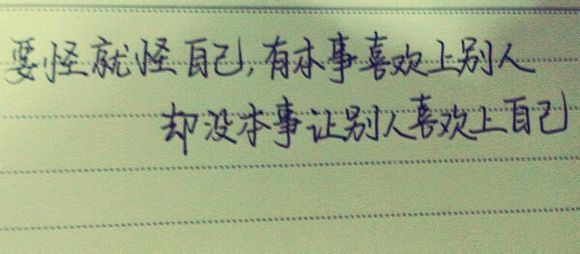 要怪就怪自己,有本事喜欢上别人
却没本事让别人喜欢上自己